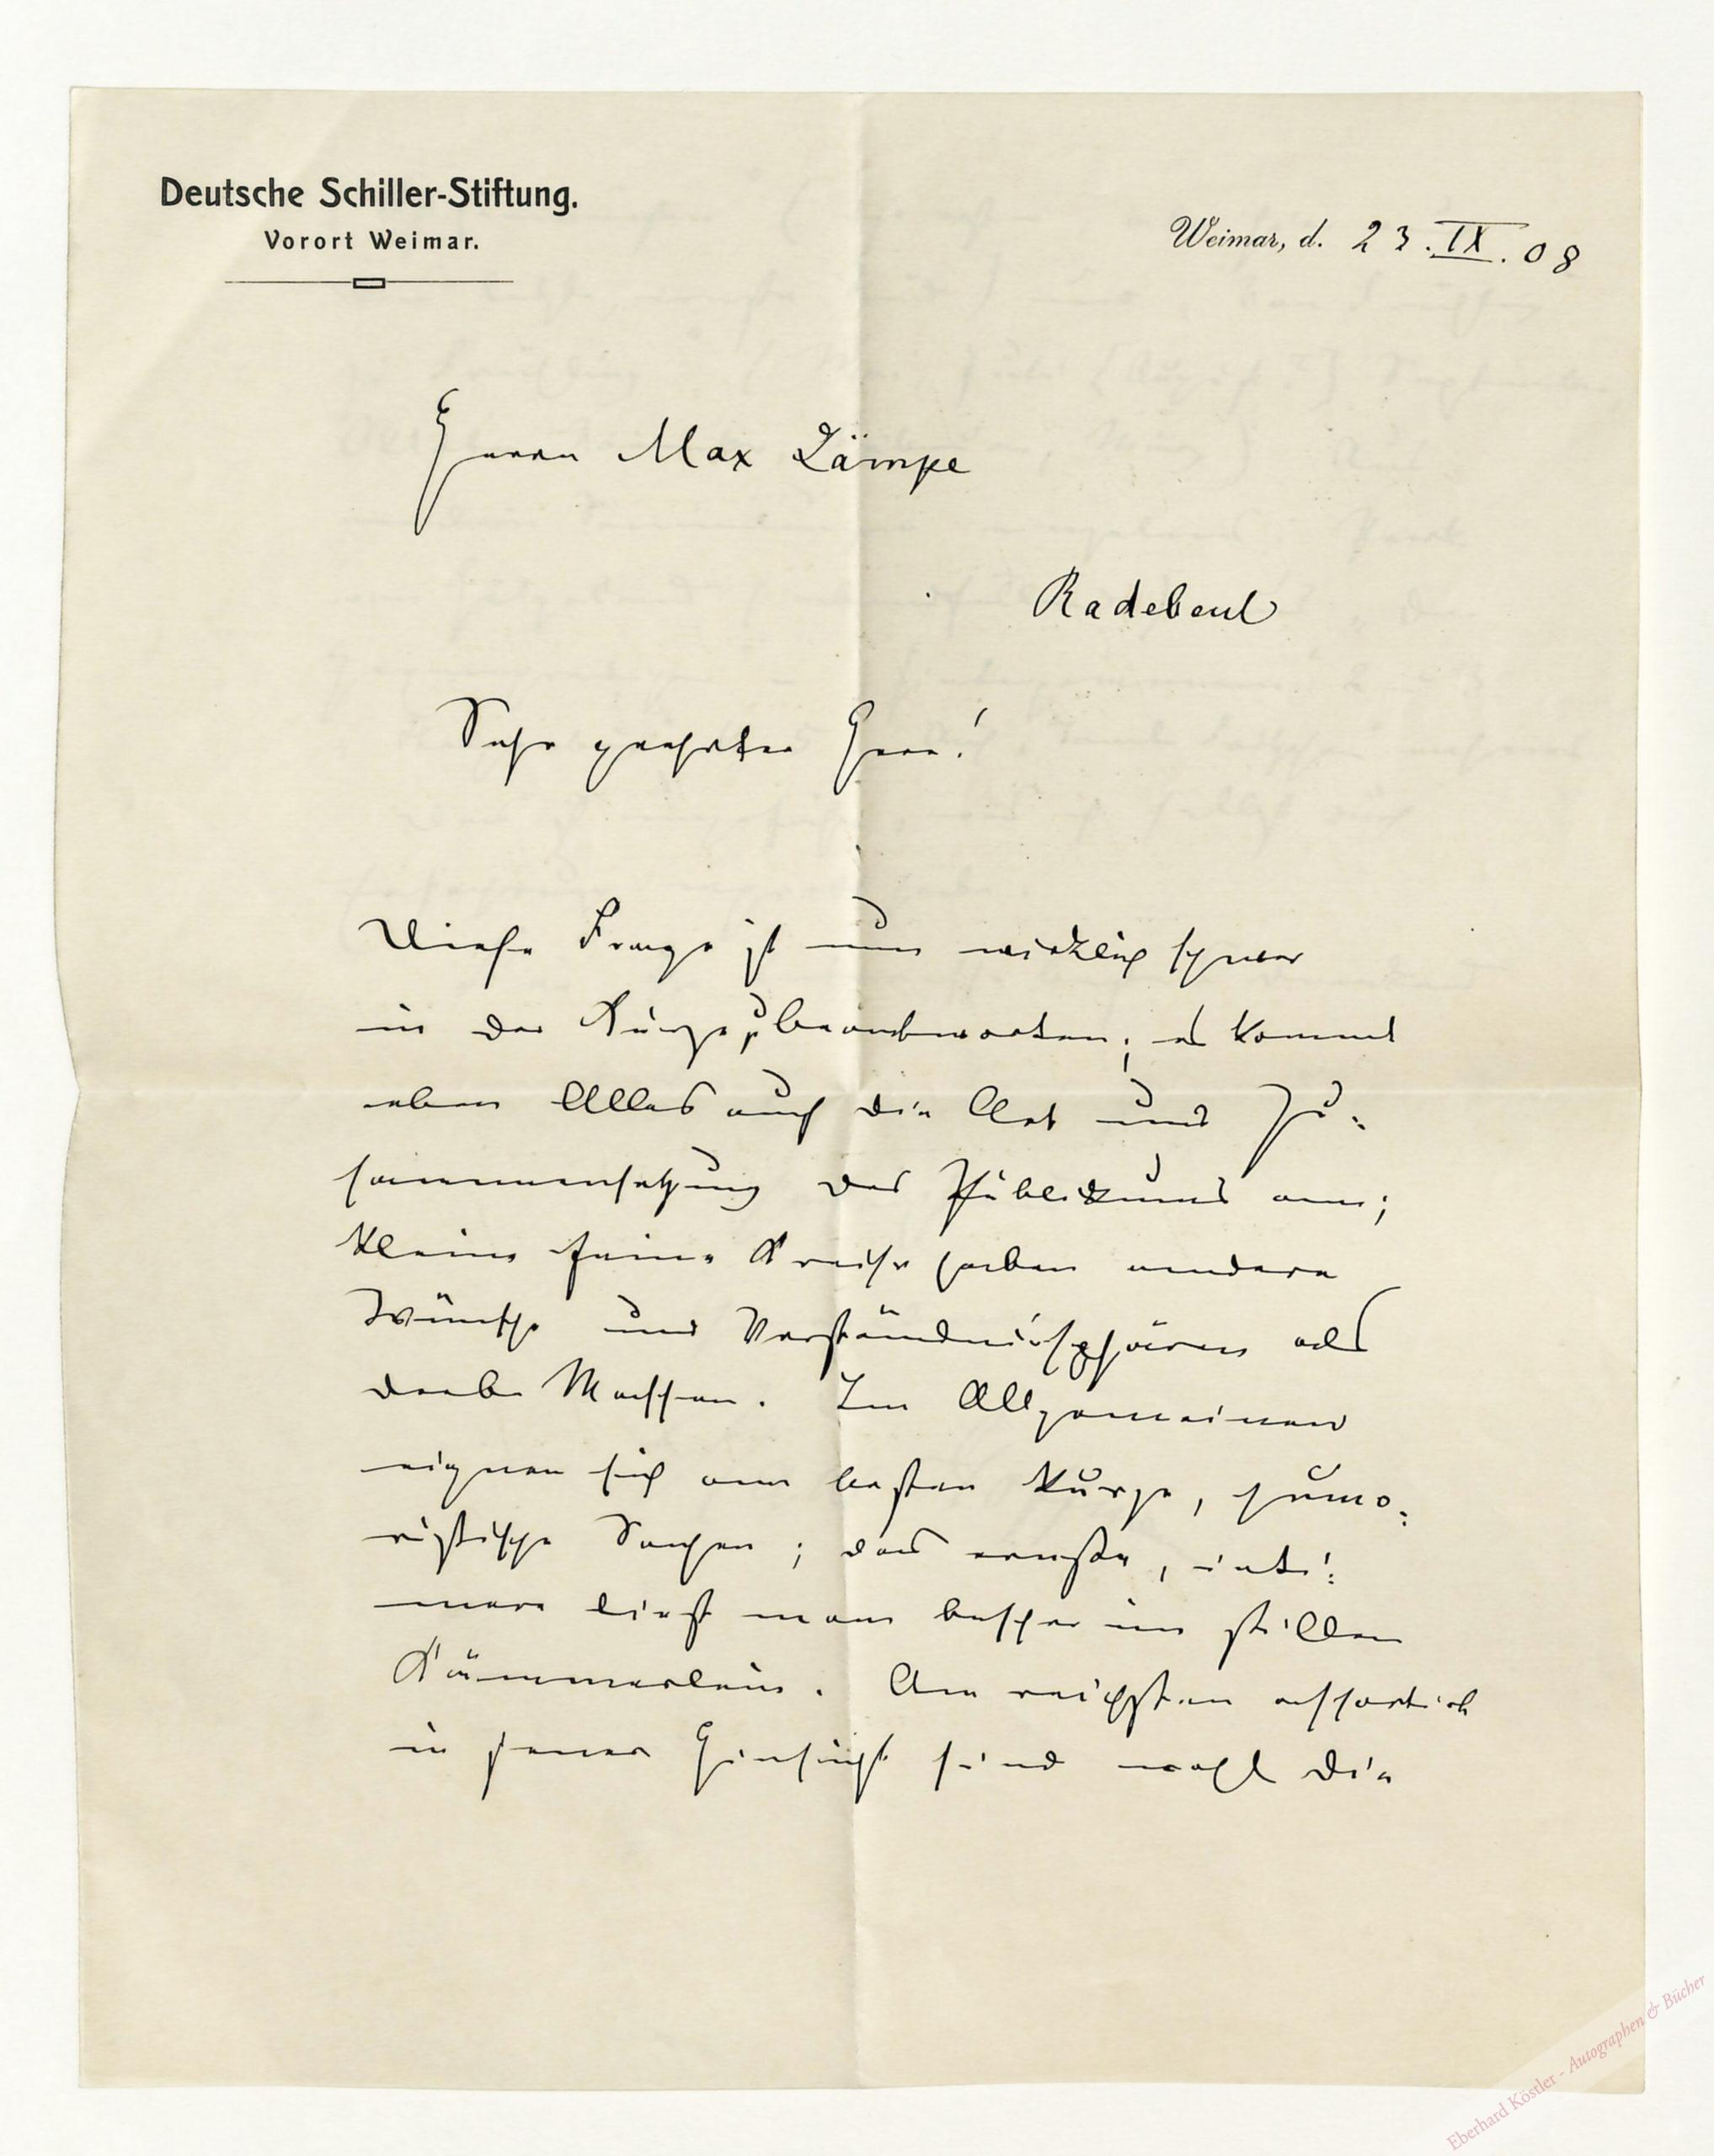 Deutsche Schiller-Stiftung.
Vorort Weimar.
Weimar, d. 23.IX.08
Herrn Max Lämpe
Radebeul
Sehr geehrter Herr!
Diese Frage ist nun wirklich schwer
in der Kürze zu beantworten; es kommt
eben Alles auf die Art und Zu-
sammensetzung des Publikums an;
kleine feine Kreise haben andere
Wünsche und Verständnissphären als
derbe Massen. Im Allgemeinen
eignen sich am besten kurze, humo-
ristische Sachen; das ernste, inti-
mere liest man besser im stillen
Kämmerlein. Am reichsten assortirt
in jener Hinsicht sind wohl die
Eberhard Köstler - Autographen & Bücher